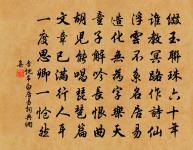 綴玉聯珠六十年
誰教冥路作詩仙
浮雲不系名居易
造化無為字樂天
童子解吟長恨曲
胡兒能唱琵琶篇
文章已滿行人耳
一度思卿一愴然